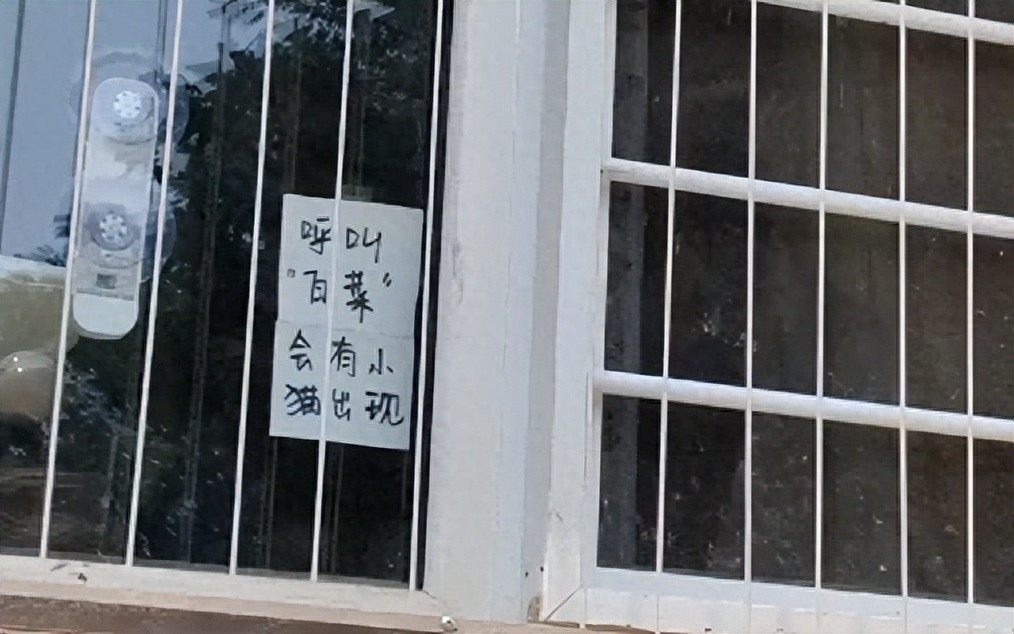 呼叫
"白菜"
会有小
猫出现